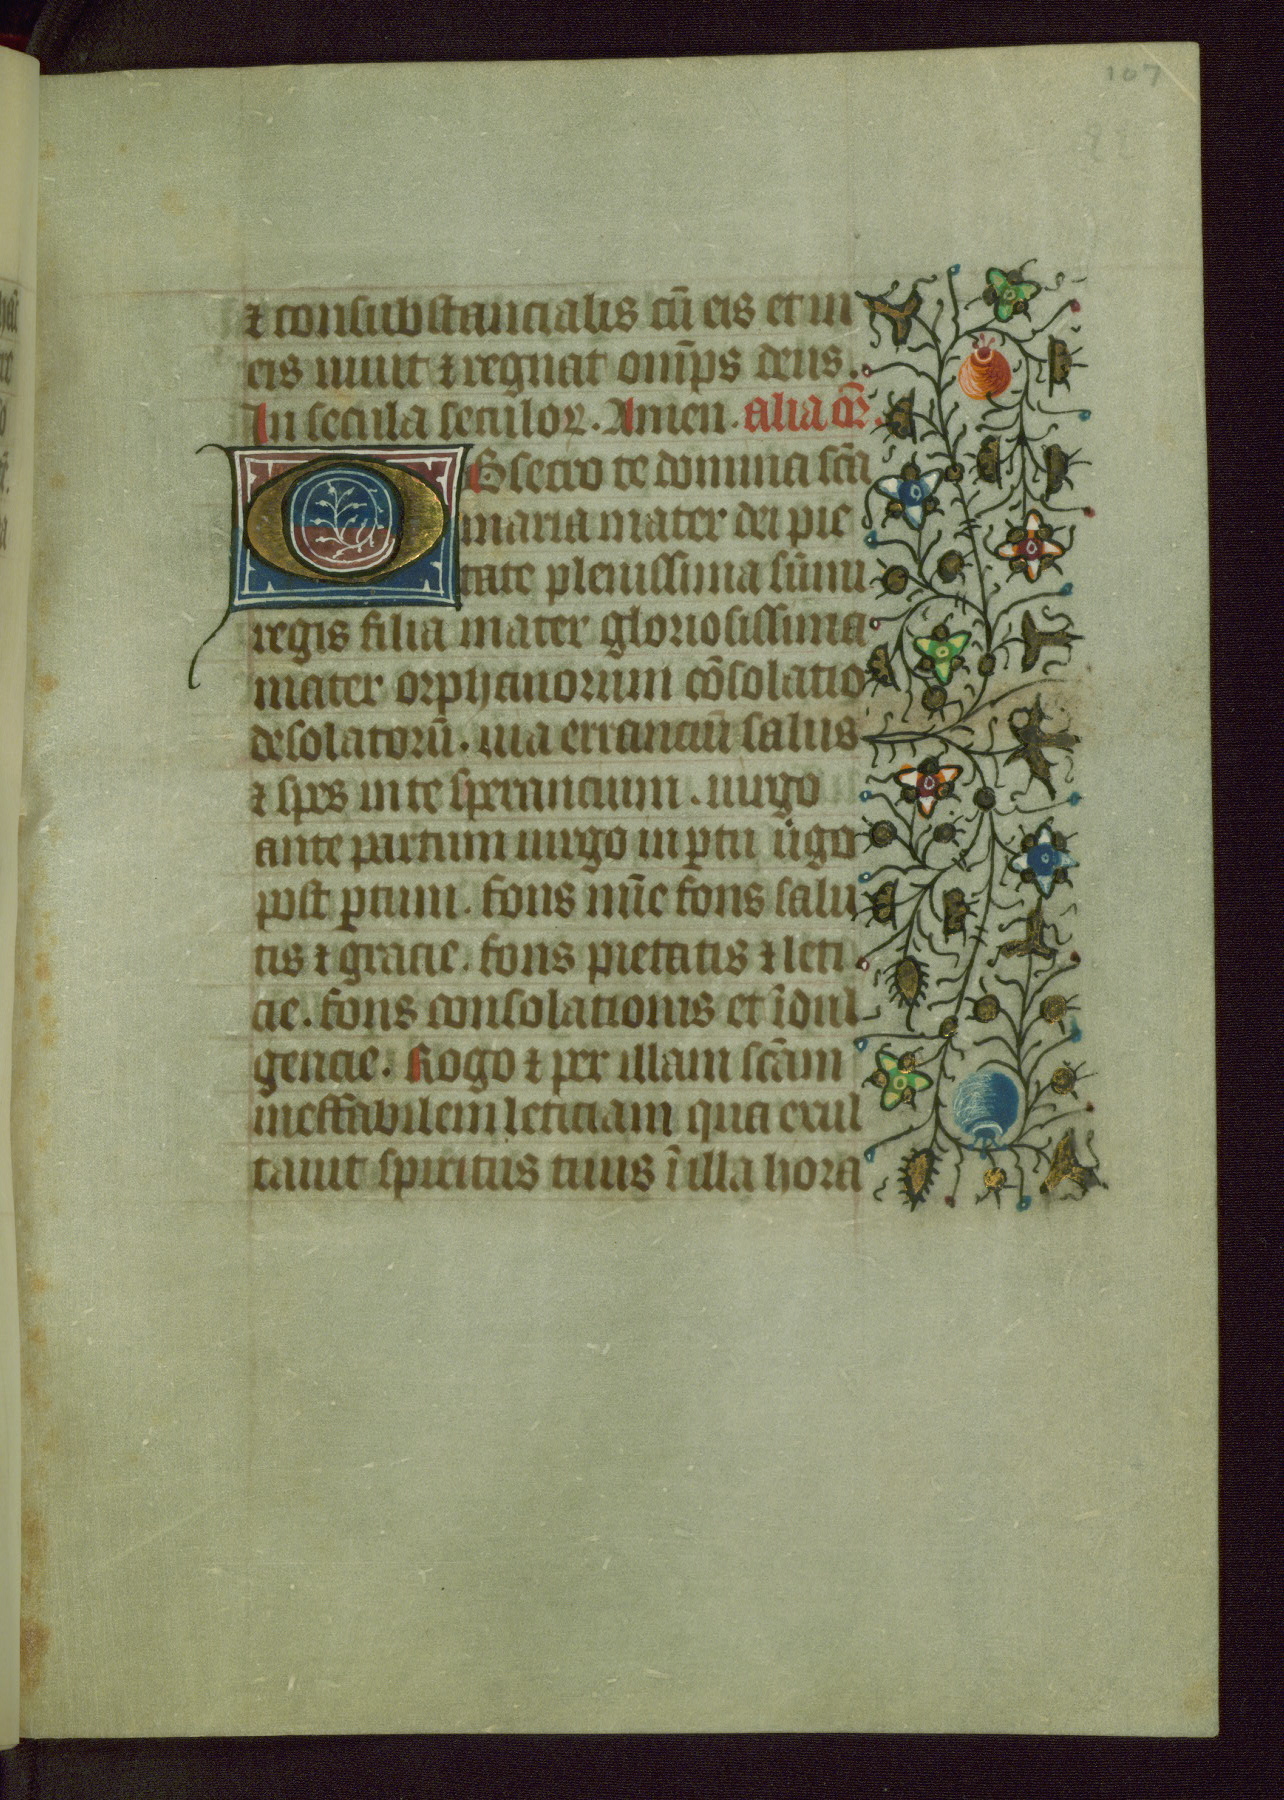 107
⁊ consubstancialis cū eis et in
eis uiuit ⁊ regnat om̄ps deus.
In secula seculoꝝ. Amen. alia or̄.
OBsecro te domina sc̄a
maria mater dei pie
tate plenissima sūmi
regis filia mater gloriosissima
mater orphanorum cōsolatio
desolatorū. uia erranciū salus
⁊ spes in te sperancium. uirgo
ante partum uirgo in ꝑtu u̇go
post ꝑtum. fons mīe fons salu
tis ⁊ gracie. fons pietatis ⁊ leti
cie. fons consolationis et īdul
gencie. Rogo ⁊ per illam sc̄am
ineffabilem leticiam qua exul
tauit spiritus tuus ī illa hora